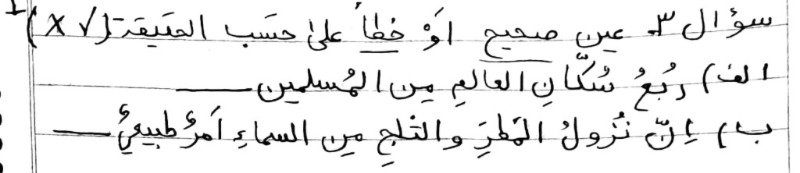 سؤال ٣ـ عين صحيح أوْ خطأ علىٰ حسَب الحقيقة (√ ×)
الف) رُبعُ سُكّانِ العالمِ مِن المُسلمين ____
ب) إنّ نُزولُ المَطرِ والثلجِ مِن السماءِ اَمرُ طبيعيُ ____